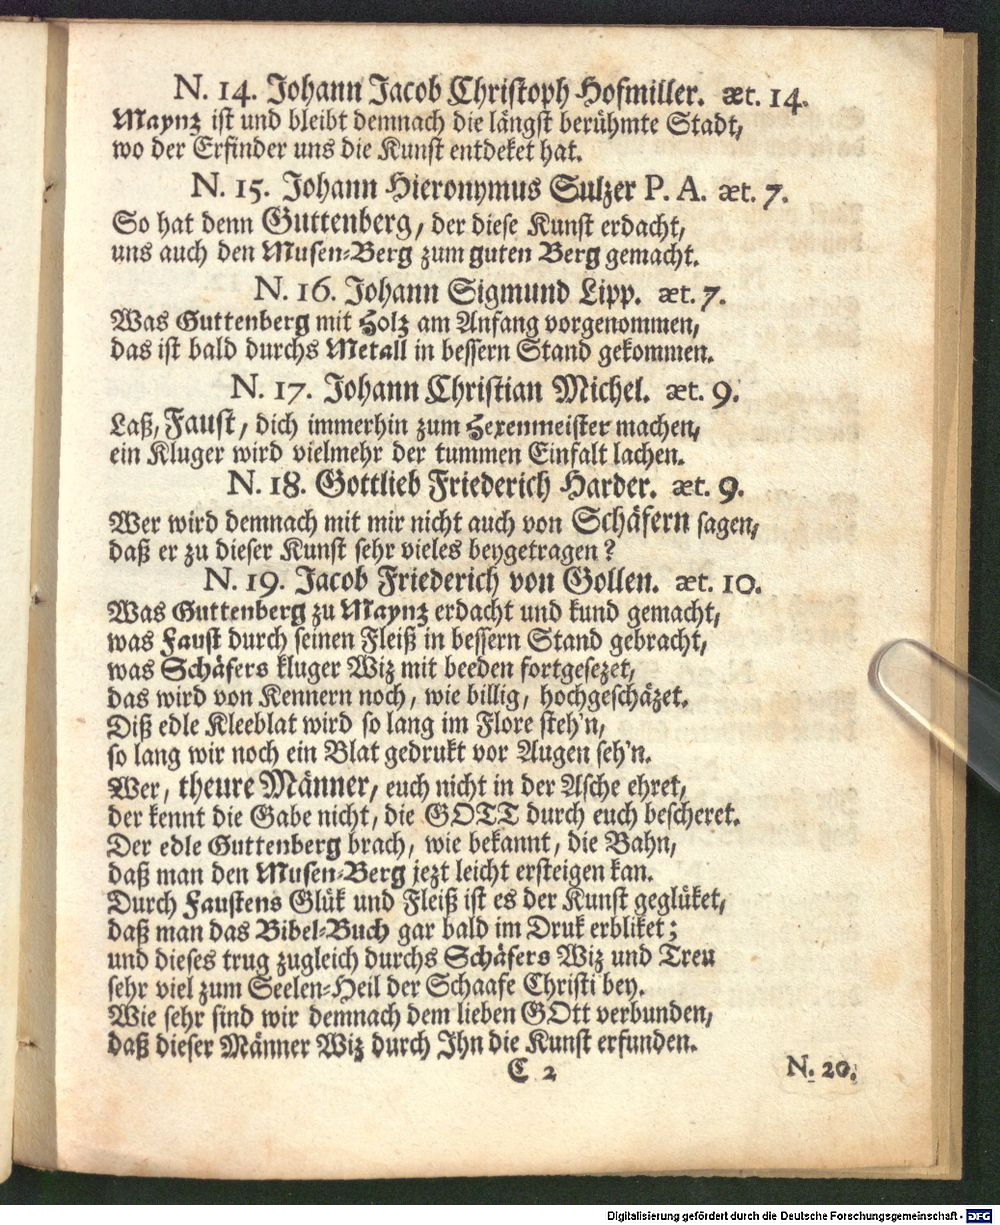 N. 14. Johann Jacob Christoph Hofmiller. æt. 14.
Maynz ist und bleibt demnach die längst berühmte Stadt,
wo der Erfinder uns die Kunst entdeket hat.
N. 15. Johann Hieronymus Sulzer P. A. æt. 7.
So hat denn Guttenberg, der diese Kunst erdacht,
uns auch den Musen-Berg zum guten Berg gemacht.
N. 16. Johann Sigmund Lipp. æt. 7.
Was Guttenberg mit Holz am Anfang vorgenommen,
das ist bald durchs Metall in bessern Stand gekommen.
N. 17. Johann Christian Michel. æt. 9.
Laß, Faust, dich immerhin zum Hexenmeister machen,
ein Kluger wird vielmehr der tummen Einfalt lachen.
N. 18. Gottlieb Friederich Harder. æt. 9.
Wer wird demnach mit mir nicht auch von Schäfern sagen,
daß er zu dieser Kunst sehr vieles beygetragen?
N. 19. Jacob Friederich von Gollen. æt. 10.
Was Guttenberg zu Maynz erdacht und kund gemacht,
was Faust durch seinen Fleiß in bessern Stand gebracht,
was Schäfers kluger Wiz mit beeden fortgesezet,
das wird von Kennern noch, wie billig, hochgeschäzet.
Diß edle Kleeblat wird so lang im Flore steh'n,
so lang wir noch ein Blat gedrukt vor Augen seh'n.
Wer, theure Männer, euch nicht in der Asche ehret,
der kennt die Gabe nicht, die GOTT durch euch bescheret.
Der edle Guttenberg brach, wie bekannt, die Bahn,
daß man den Musen-Berg jezt leicht ersteigen kan.
Durch Faustens Glük und Fleiß ist es der Kunst geglüket,
daß man das Bibel-Buch gar bald im Druk erbliket;
und dieses trug zugleich durchs Schäfers Wiz und Treu
sehr viel zum Seelen-Heil der Schaafe Christi bey.
Wie sehr sind wir demnach dem lieben GOtt verbunden,
daß dieser Männer Wiz durch Ihn die Kunst erfunden.
C 2 N. 20.
Digitalisierung gefördert durch die Deutsche Forschungsgemeinschaft - DFG